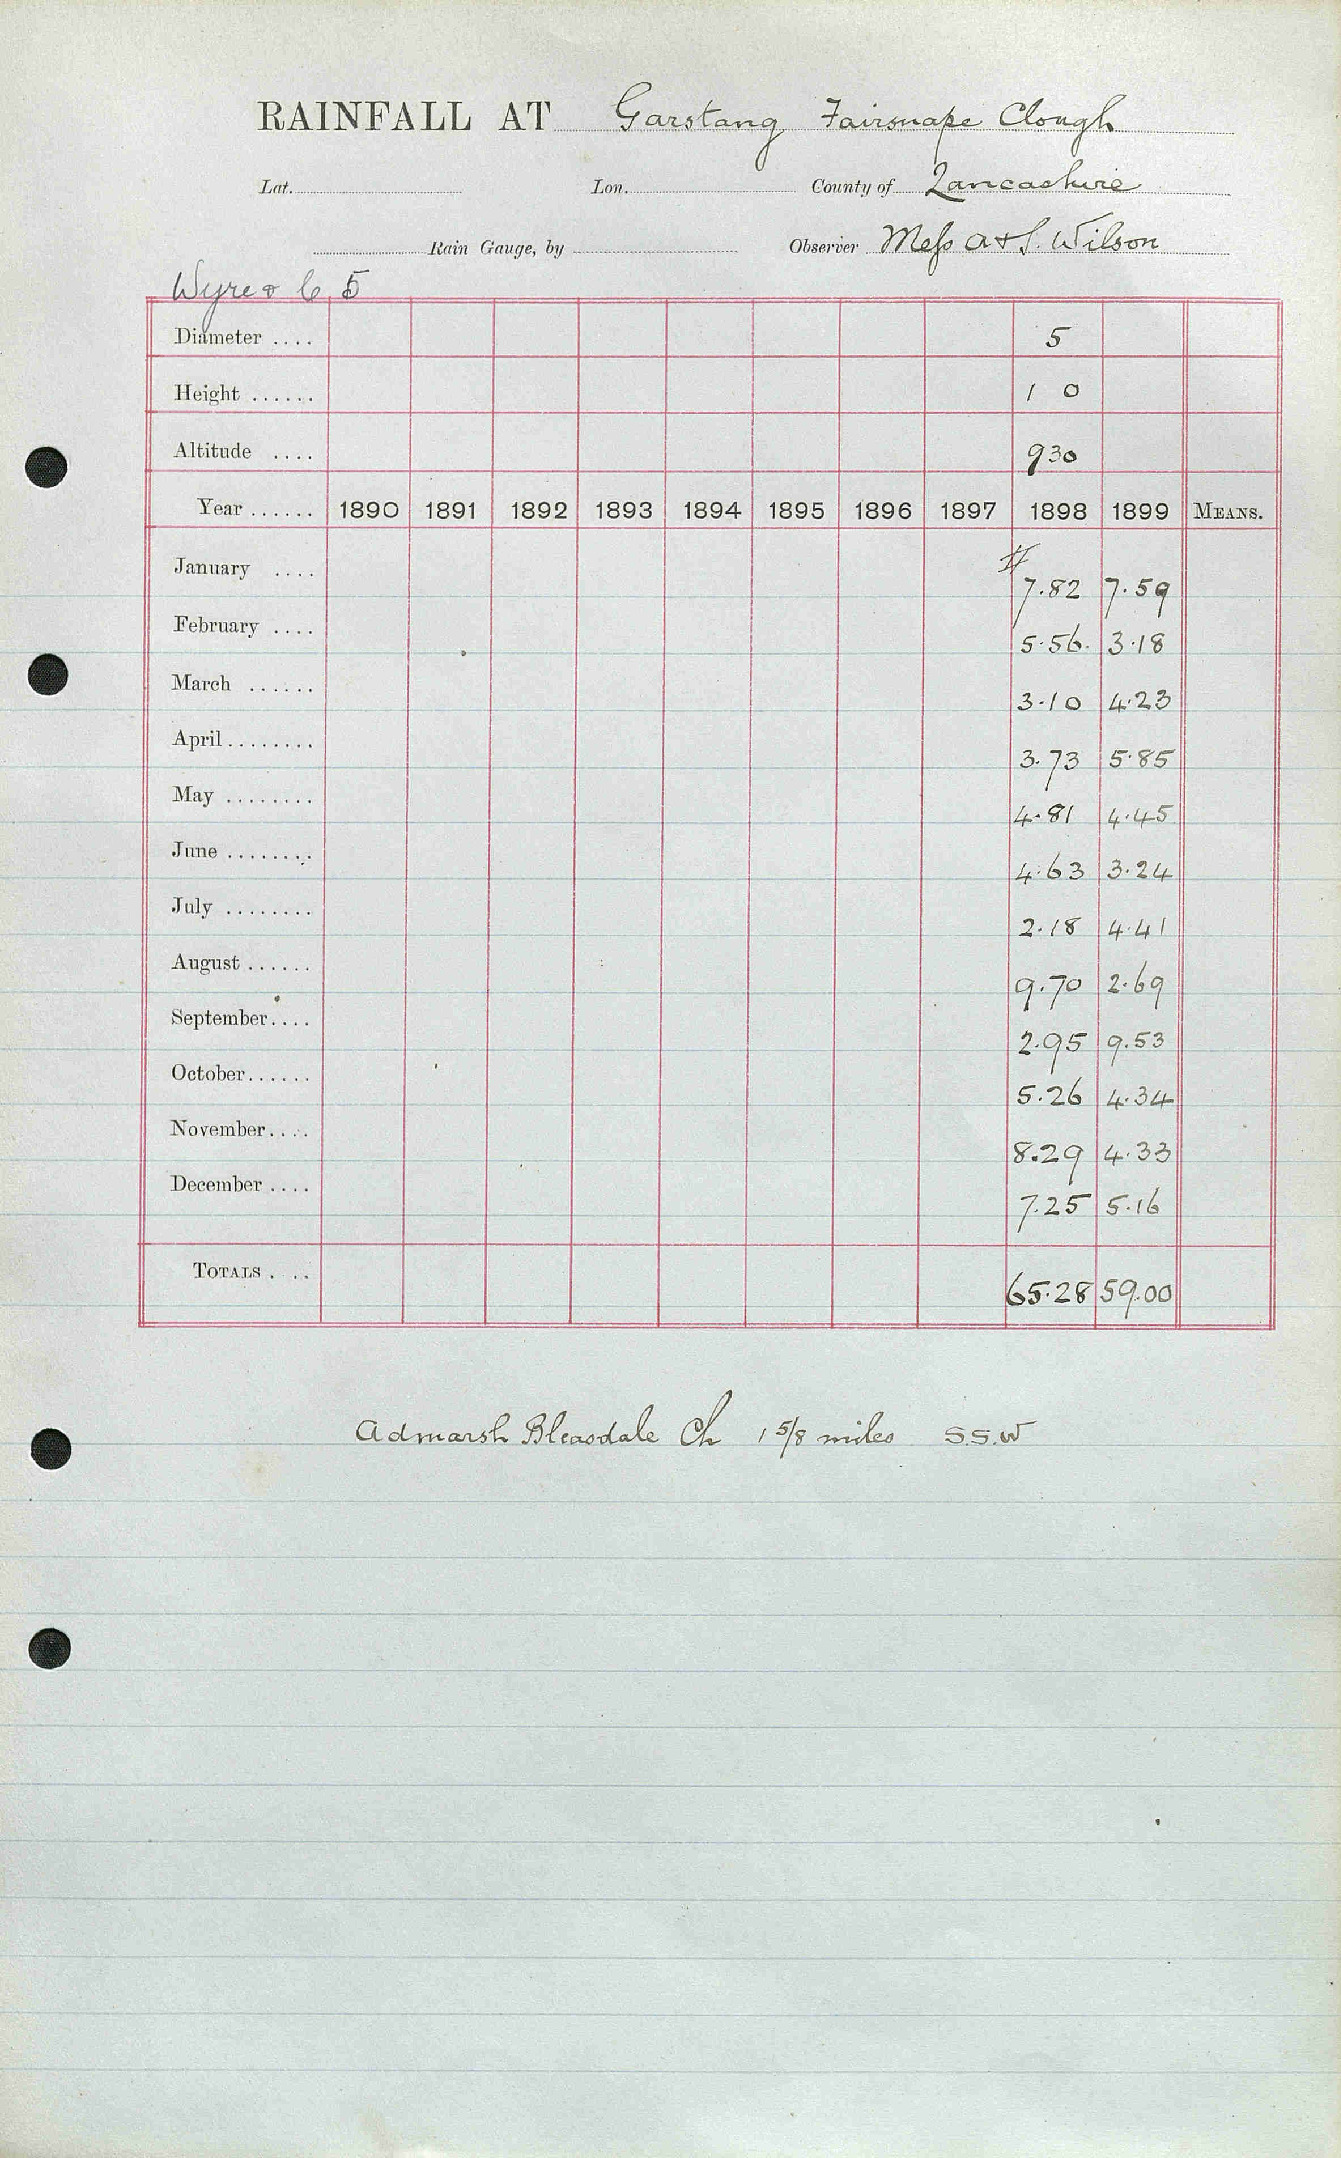 RAINFALL AT Garstang Fairsnape Clough
Lat. Lon. County of Lancashire
Rain Gauge, by Observer Mess A & S. Wilson
Wyre & C 5
Diameter .... 5
Height ...... 1 0
Altitude .... 930
Year ...... 1890 1891 1892 1893 1894 1895 1896 1897 1898 1899 MEANS.
January .... # 7.82 7.59
February .... 5.56. 3.18
March ...... 3.10 4.23
April ........ 3.73 5.85
May ........ 4.81 4.45
June ........ 4.63 3.24
July ........ 2.18 4.41
August ...... 9.70 2.69
September.... 2.95 9.53
October...... 5.26 4.34
November.... 8.29 4.33
December .... 7.25 5.16
TOTALS . .. 65.28 59.00
Admarsh Bleasdale Ch 1 5/8 miles S.S.W